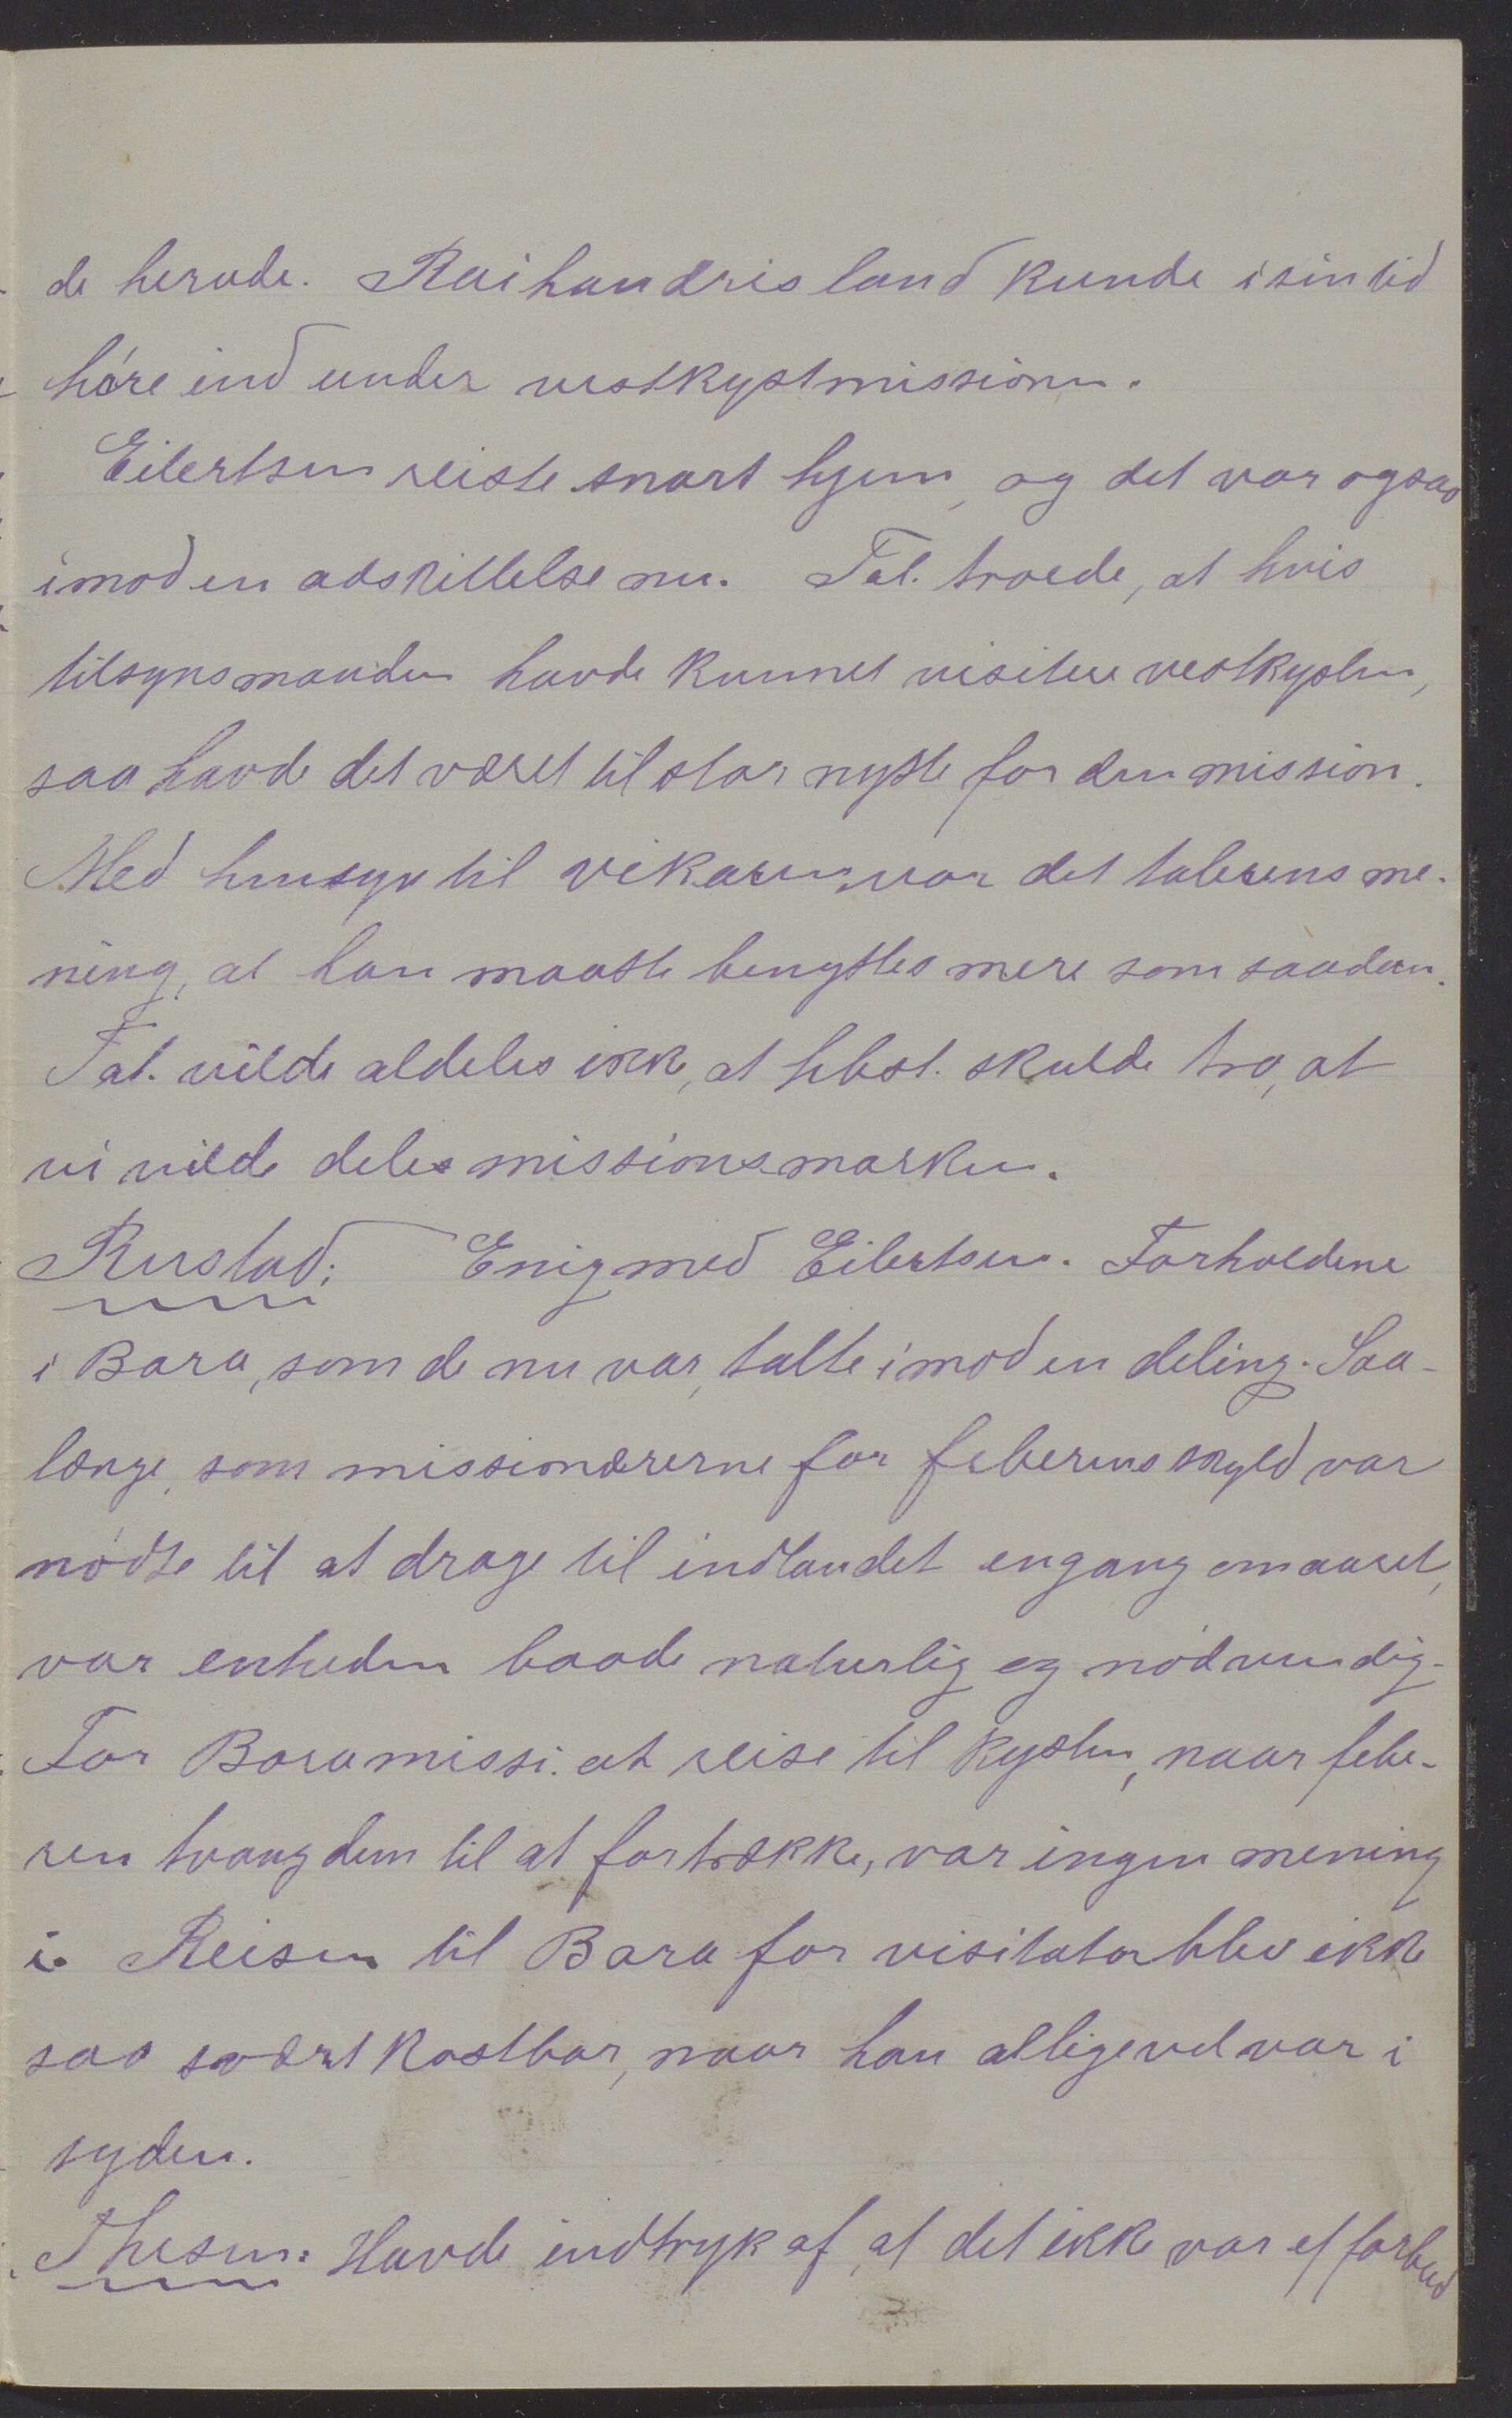 de herude. Raihandris land kunde i sin tid
høre ind under vestkystmissionen.
Eilertsen reiste snart hjem, og det var ogsaa
imod en adskillelse nu. Tal. troede, at hvis
tilsynsmanden havde kunnet visitere vestkysten,
saa havde det været til stor nytte for den mission.
Med hensyn til vikaren, var det talerens me-
ning, at han maatte benyttes mere som saadan.
Tal. vilde aldeles ikke, at hbst. skulde tro, at
vi vilde deles missionsmarken.
Rustad: Enig med Eilertsen. Forholdene
i Bara, som de nu var, talte imod en deling. Saa-
længe, som missionærerne for feberens skyld var
nødte til at drage til indlandet engang om aaret,
var enheden baade naturlig og nødvendig.
For Baramissi. at reise til kysten, naar febe-
ren tvang dem til at fortrække, var ingen mening
i. Reisen til Bara for visitator blev ikke
saa svært kostbar, naar han alligevel var i
syden.
Thesen: Havde indtryk af, at det ikke var et forbud